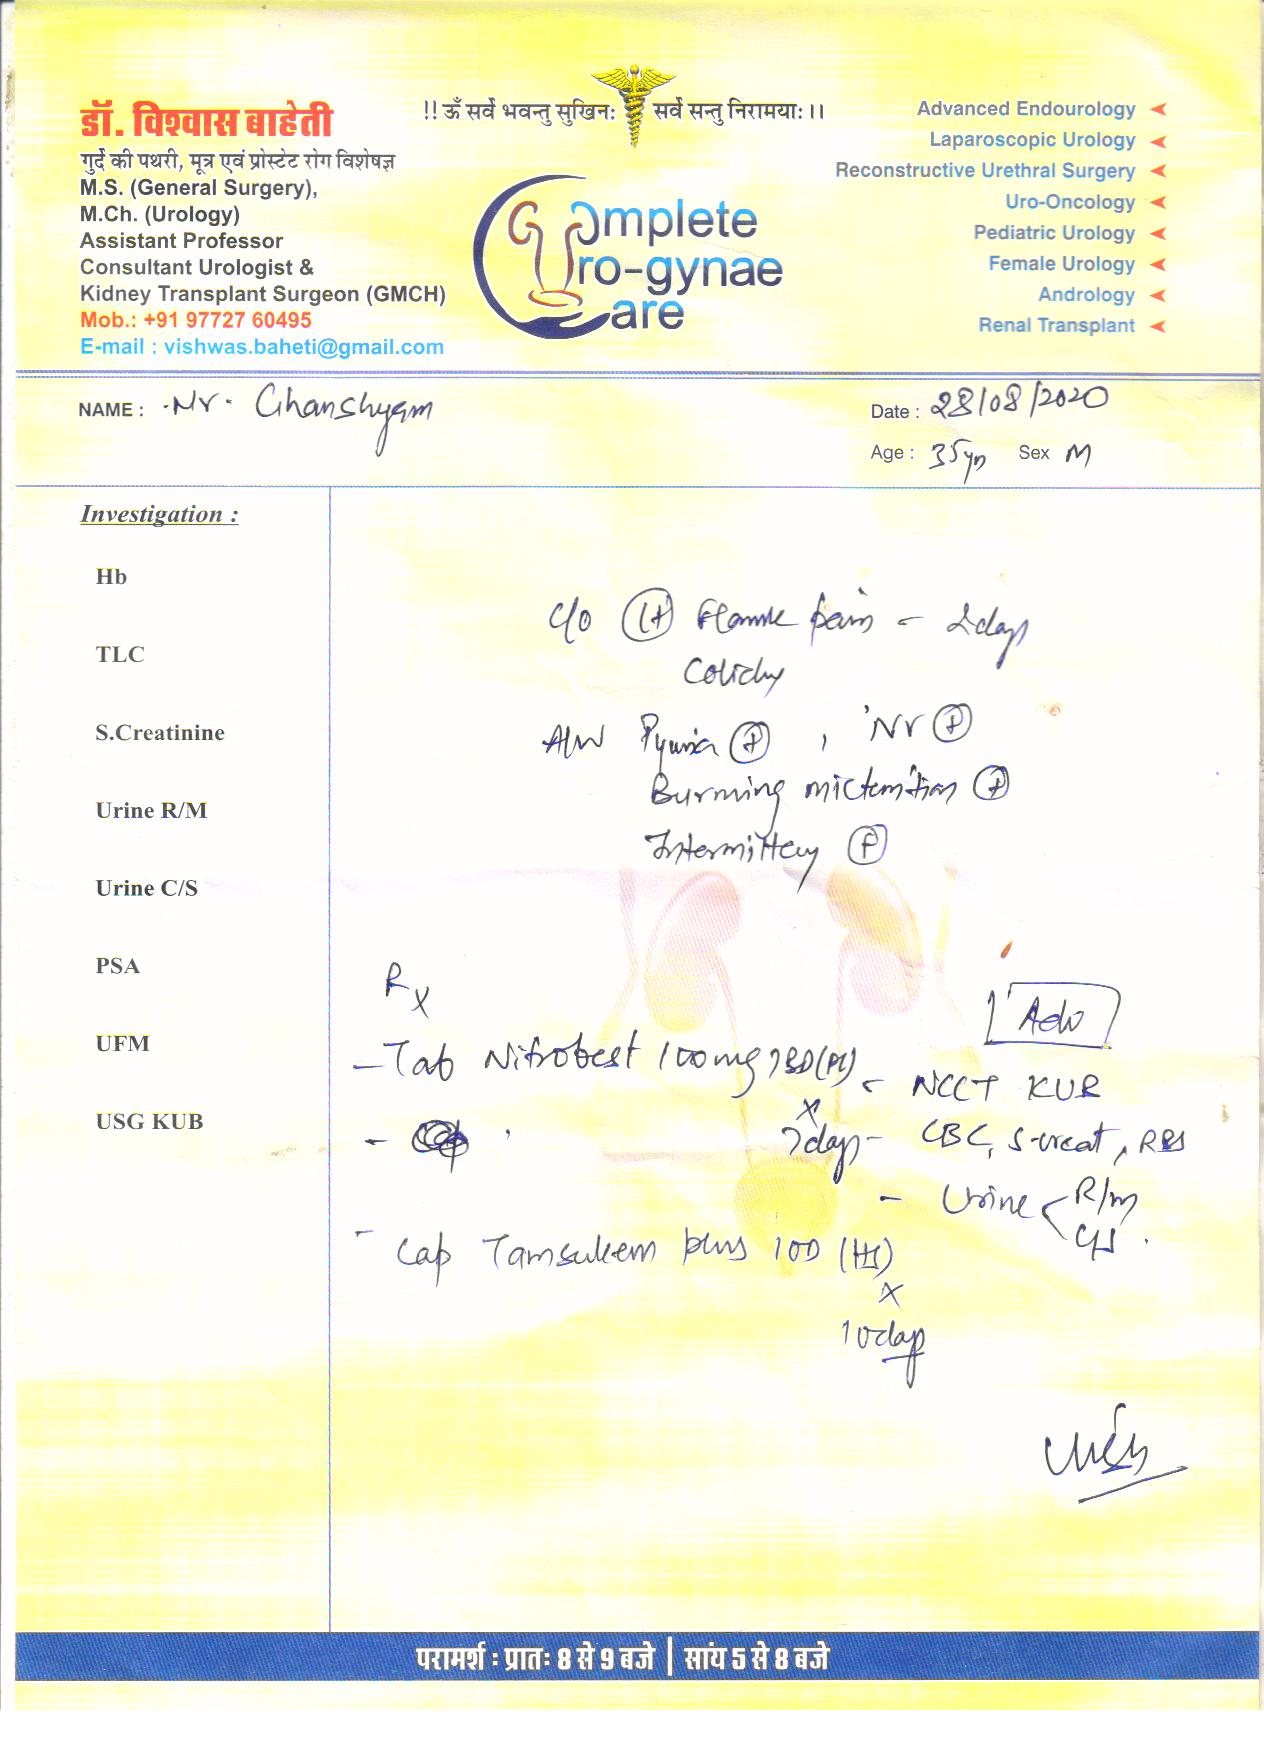 !! ॐ सर्वे भवन्तु सुखिनः सर्वे सन्तु निरामयाः ।।
डॉ. विश्वास बाहेती
गुर्दे की पथरी, मूत्र एवं प्रोस्टेट रोग विशेषज्ञ
M.S. (General Surgery),
M.Ch. (Urology)
Assistant Professor
Consultant Urologist &
Kidney Transplant Surgeon (GMCH)
Mob.: +91 97727 60495
E-mail : vishwas.baheti@gmail.com
Complete
Uro-gynae
Care
Advanced Endourology
Laparoscopic Urology
Reconstructive Urethral Surgery
Uro-Oncology
Pediatric Urology
Female Urology
Andrology
Renal Transplant
NAME : Mr. Ghanshyam
Date : 28/08/2020
Age : 35yr Sex M
Investigation :
Hb
TLC
S.Creatinine
Urine R/M
Urine C/S
PSA
UFM
USG KUB
c/o Flank pain - 2days
Colicky
A/W Pyuria (+) , N/V (+)
Burning micturition (+)
Intermittency (+)
Rx
- Tab Nitrobest 100mg BD
x
7days
- Cap Tamsukem plus 10D (HS)
x
10days
Adv
- NCCT KUB
- CBC, S. creat, RBS
- Urine < R/m
C/S
परामर्श : प्रातः 8 से 9 बजे | सांय 5 से 8 बजे